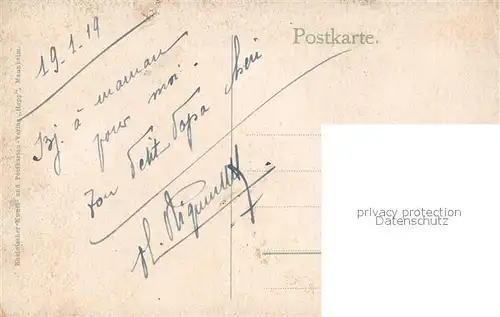 Postkarte.
19-1-19
Bj. à maman
pour moi.
Ton Petit Papa chéri
Rheinischer Kunst- und Postkarten-Verlag „Hepp“, Mannheim.
privacy protection
Datenschutz